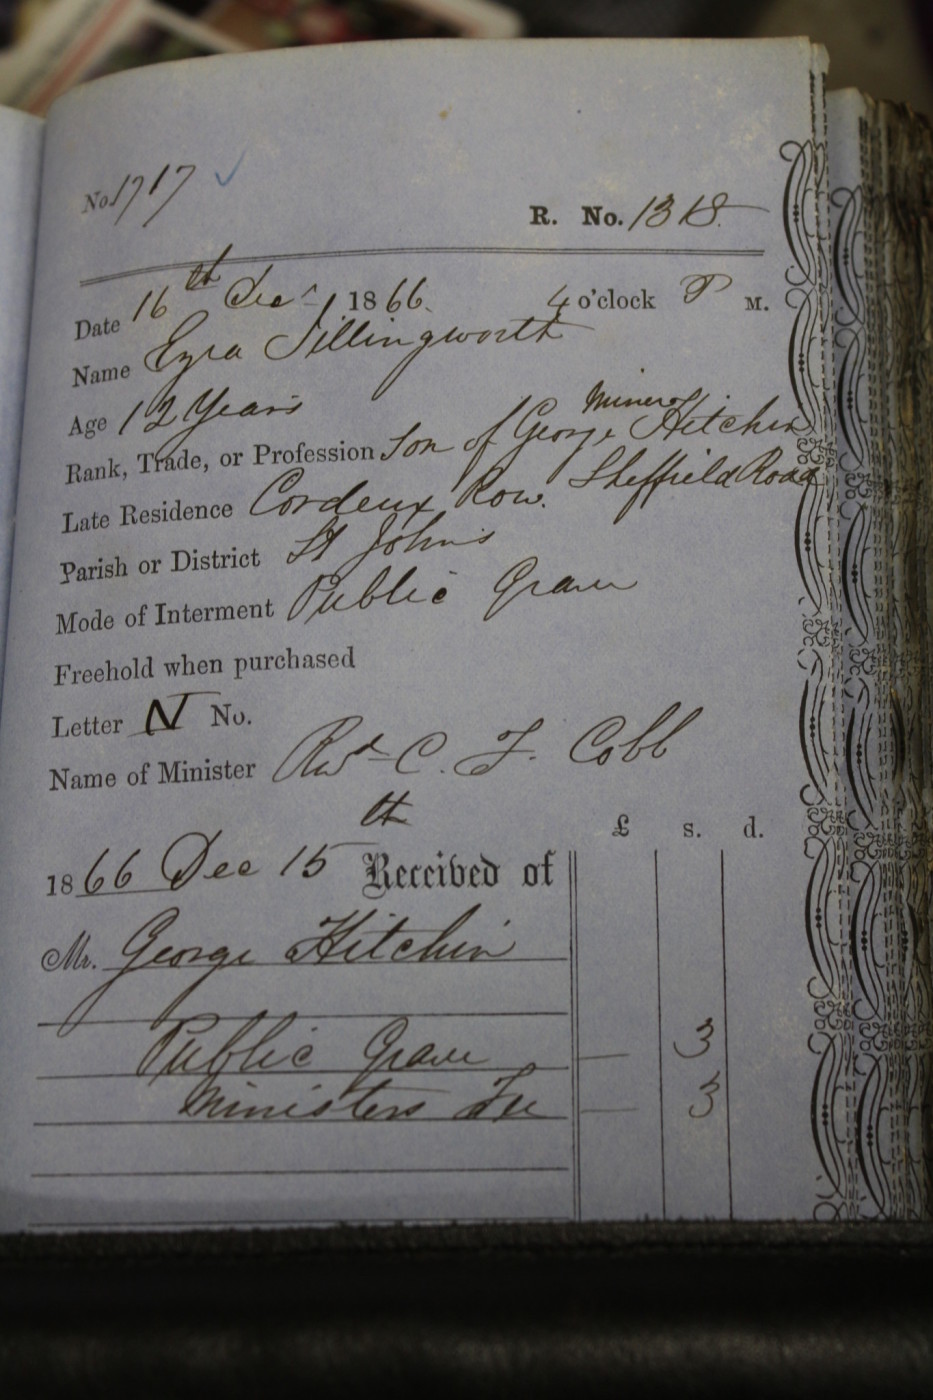 No. 1717
R. No. 1318
Date 16th Decr 1866. 4 o'clock P M.
Name Ezra Illingworth
Age 12 Years
Miner
Rank, Trade, or Profession Son of George Hitchin
Late Residence Cordeux Row. Sheffield Road
Parish or District St Johns
Mode of Interment Public Grave
Freehold when purchased
Letter N No.
Name of Minister Revd C. F. Cobb
£ s. d.
1866 Dec 15th Received of
Mr. George Hitchin
Public Grave — 3
Ministers Fee — 3